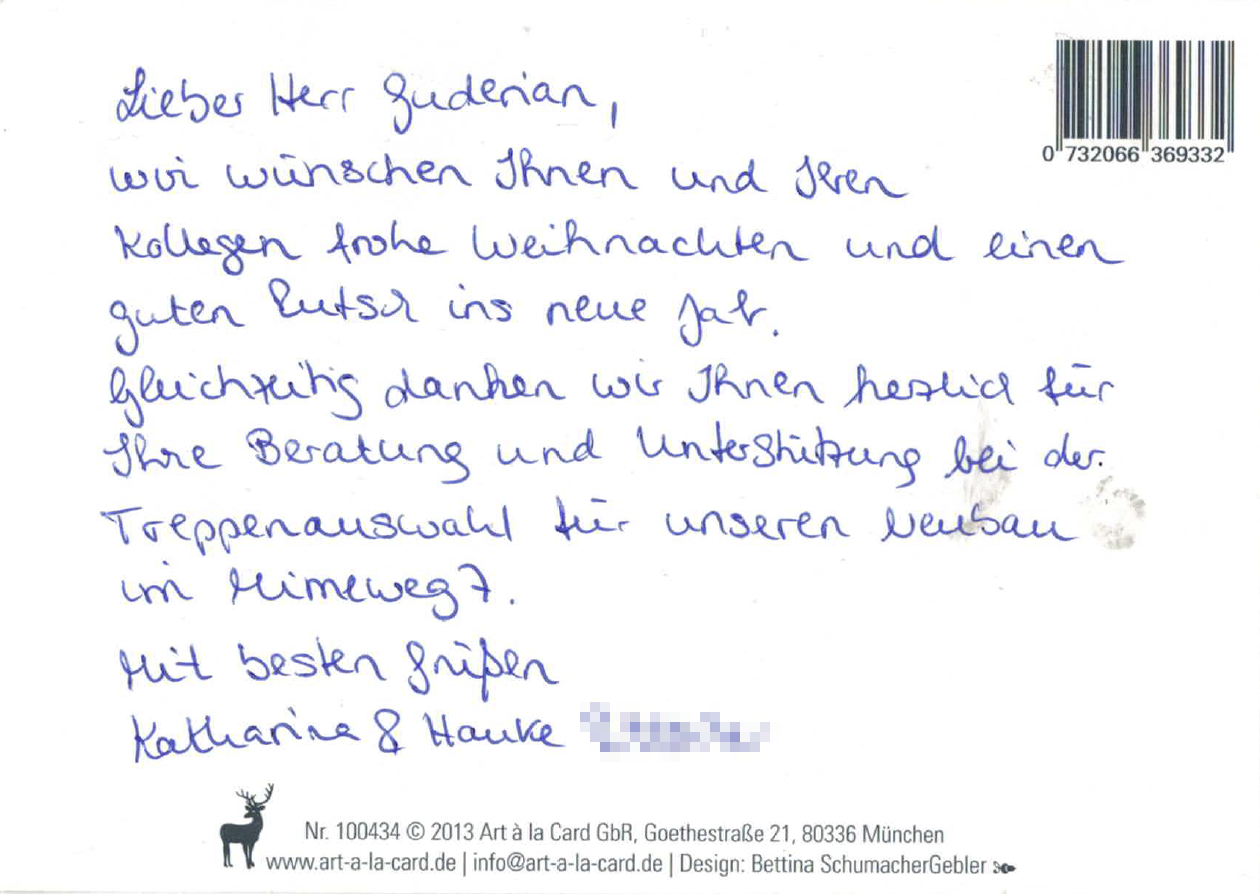 Lieber Herr Guderian,
0 732066 369332
wir wünschen Ihnen und Ihren
Kollegen frohe Weihnachten und einen
guten Rutsch ins neue Jahr.
Gleichzeitig danken wir Ihnen herzlich für
Ihre Beratung und Unterstützung bei der
Treppenauswahl für unseren Neubau
im Mimeweg 7.
Mit besten Grüßen
Katharina & Hauke
Nr. 100434 © 2013 Art à la Card GbR, Goethestraße 21, 80336 München
www.art-a-la-card.de | info@art-a-la-card.de | Design: Bettina SchumacherGebler